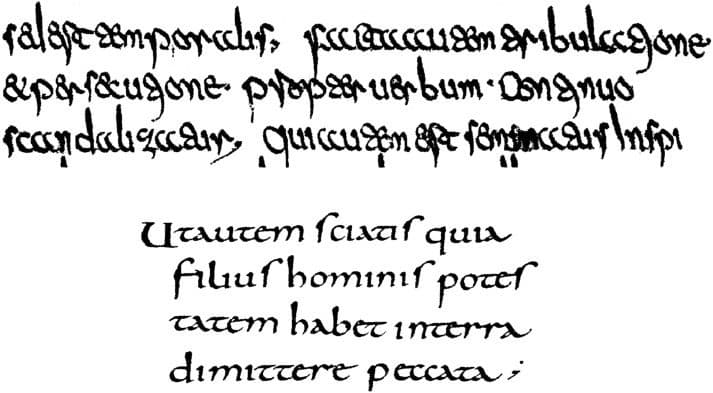 sedest temporalis, facta autem tribulatione
&persecutione propter uerbum. Continuo
scandalizatur, Qui autem est seminatus Inspi
Utautem sciatis quia
filius hominis potes
tatem habet interra
dimittere peccata ;